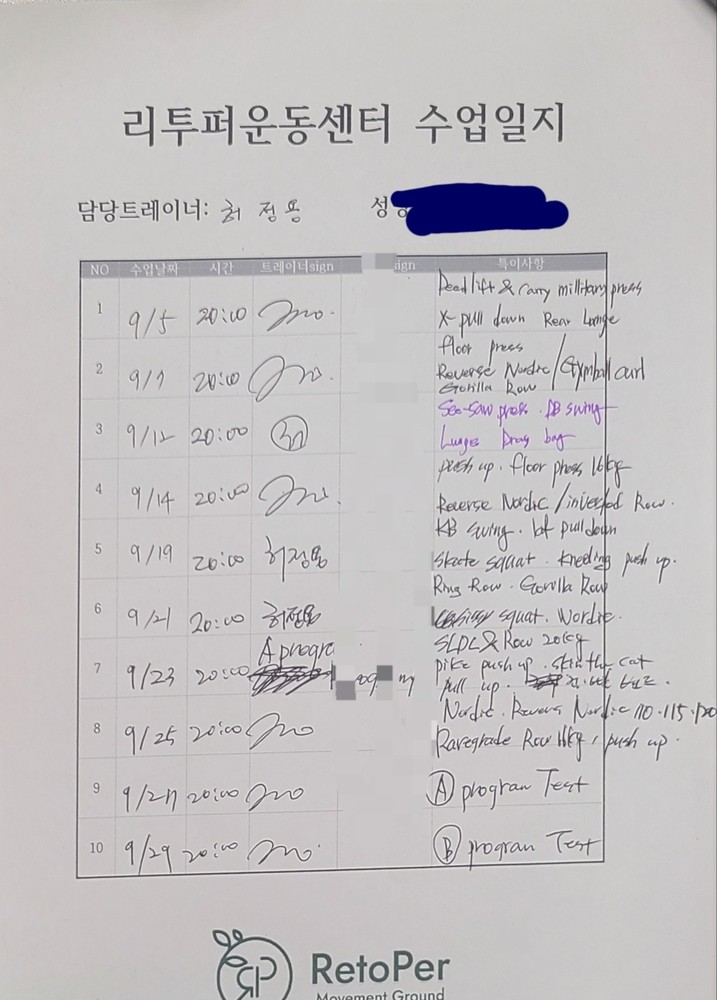 리투퍼운동센터 수업일지
담당트레이너: 허 정용 성
NO 수업날짜 시간 트레이너sign sign 특이사항
Dead lift & carry millitary press
1 9/5 20:00 X-pull down Rear Lunge
floor press
2 9/7 20:00 Reverse Nordic / Gymball curl
Gorilla Row
See-saw press . DB swing
3 9/12 20:00 허 Lunge Drag bag
push up . floor press 16kg
4 9/14 20:00 Reverse Nordic / inverted Row .
KB swing . lat pull down
5 9/19 20:00 허정용 skate squat . kneeling push up .
Ring Row . Gorilla Row
6 9/21 20:00 허정용 squat . Nordic .
A progra SLDL & Row 20kg
7 9/23 20:00 pike push up . skin the cat
pull up .
Nordic . Revers Nordic 110 . 115 . 120
8 9/25 20:00 Row 16kg , push up .
9 9/27 20:00 A program Test
10 9/29 20:00 B program Test
RetoPer
Movement Ground